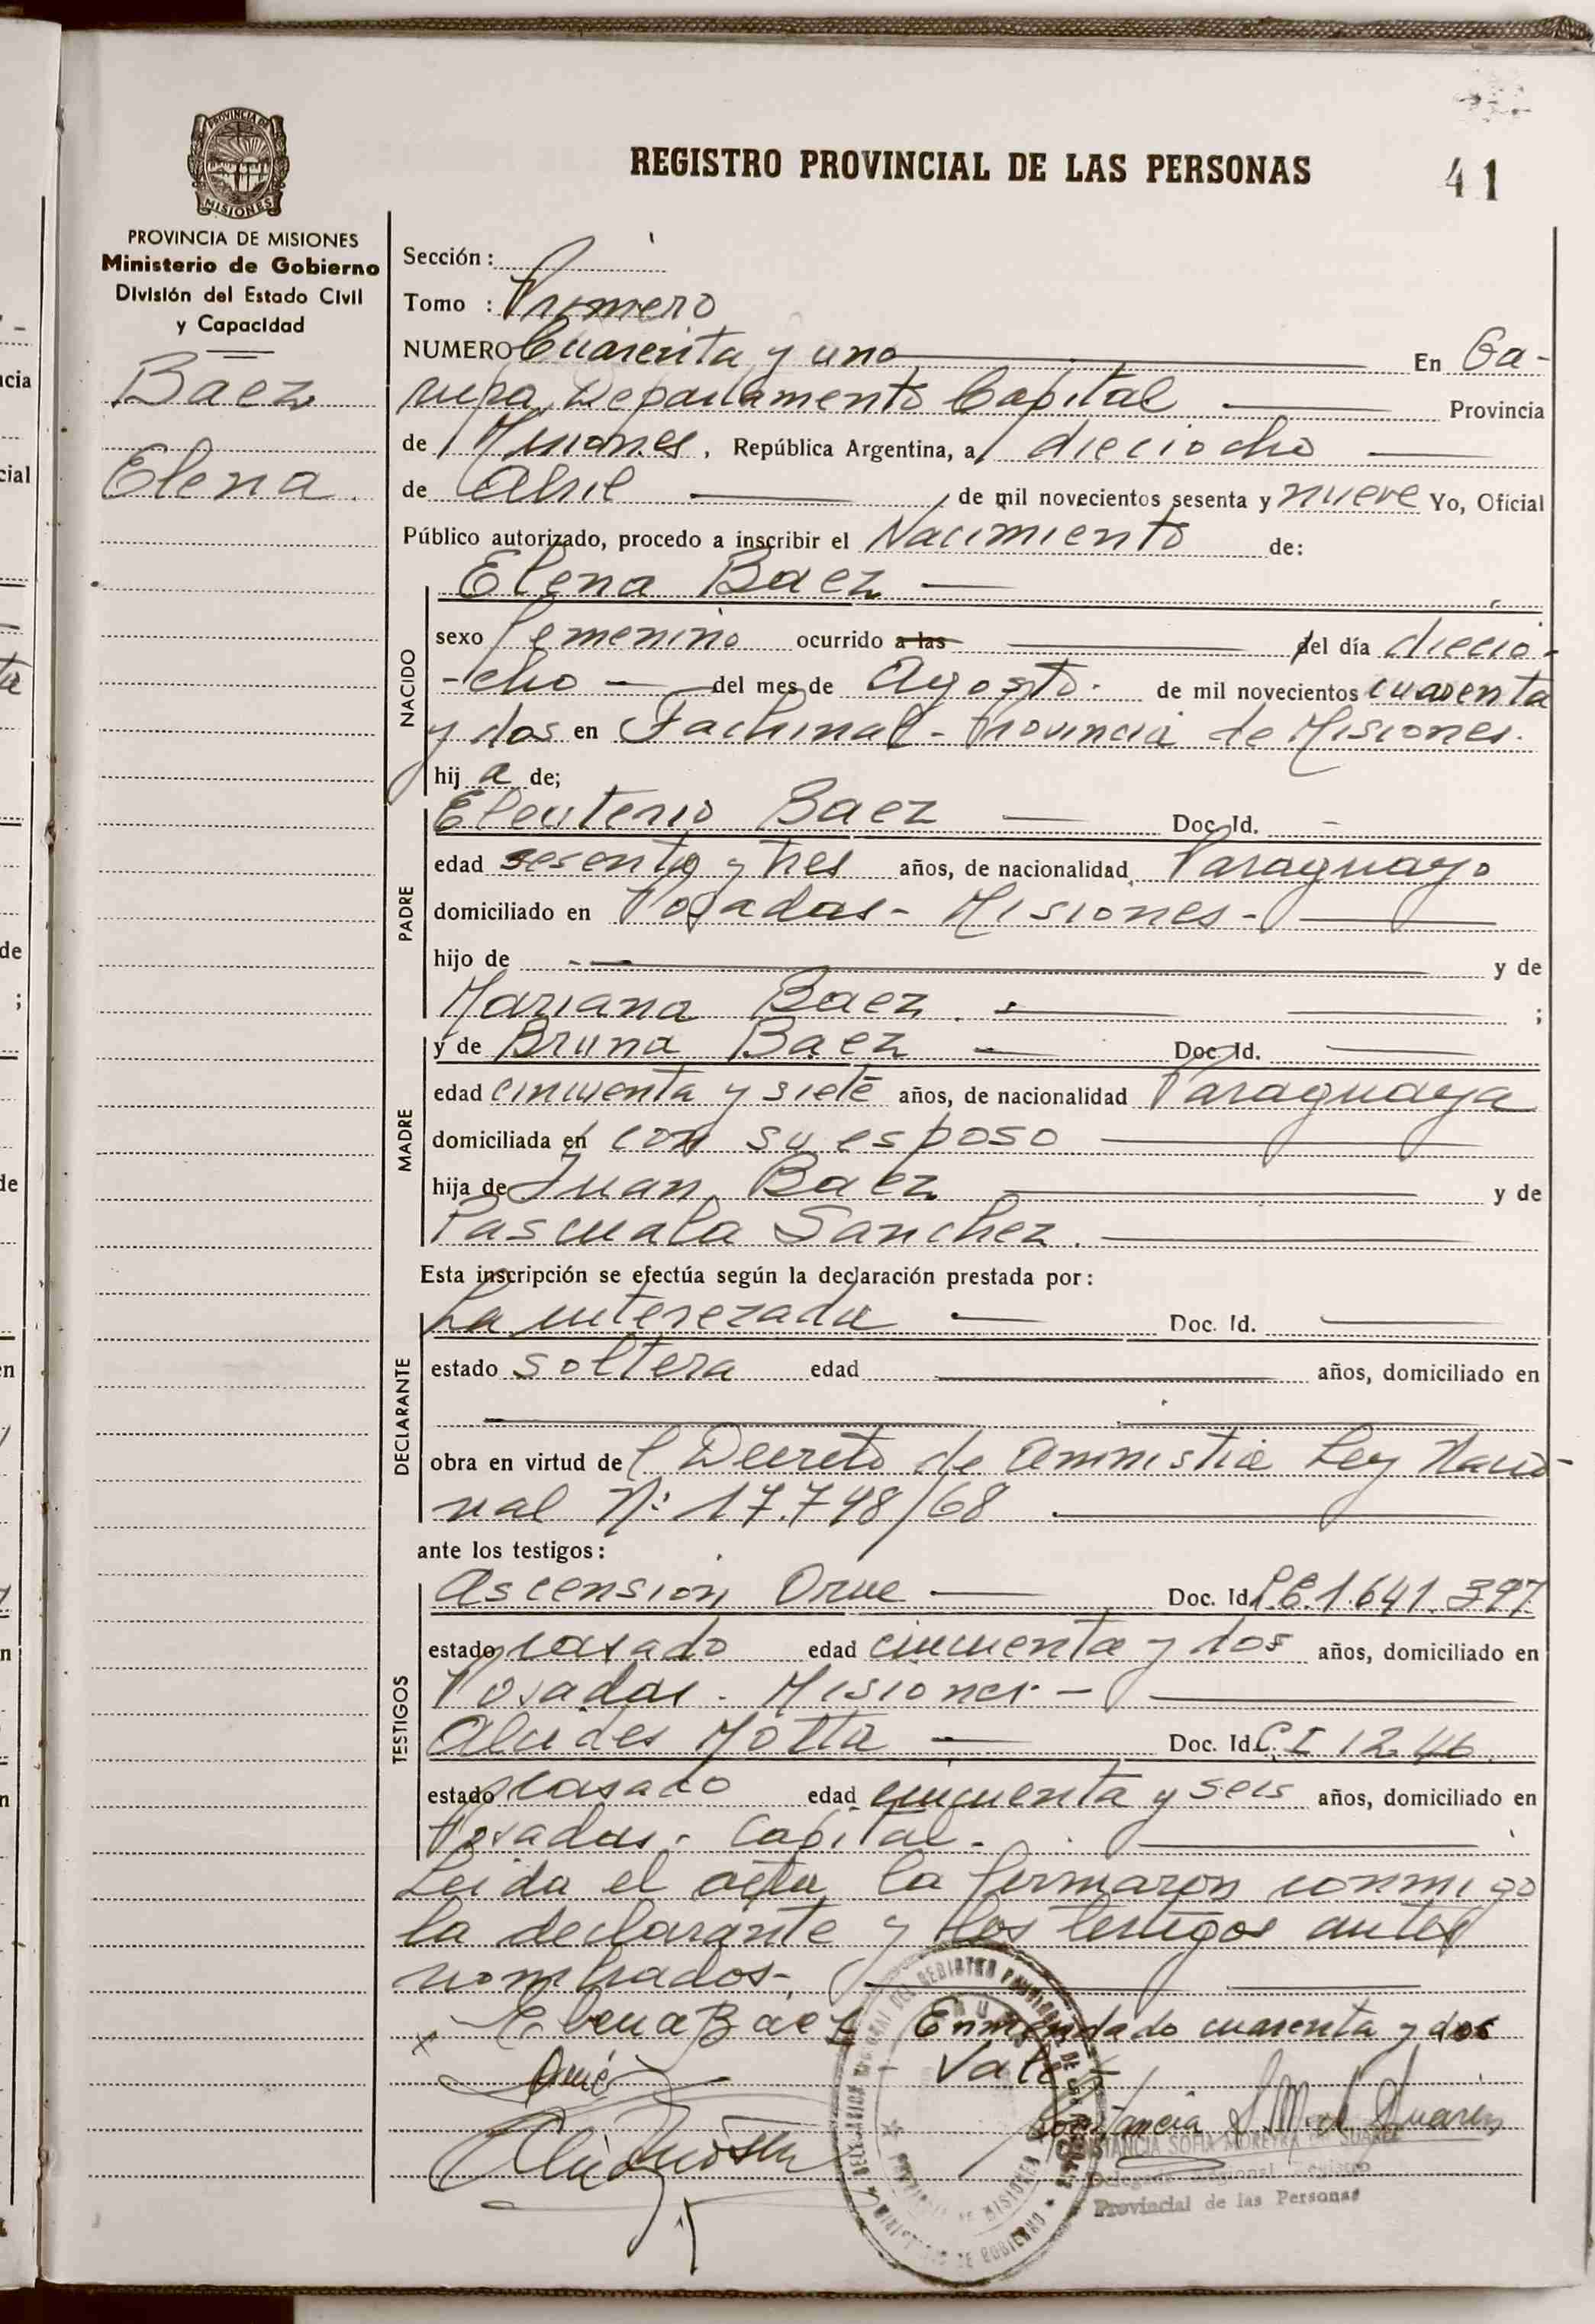 PROVINCIA DE
MISIONES
PROVINCIA DE MISIONES
Ministerio de Gobierno
División del Estado Civil
y Capacidad
Baez
Elena.
REGISTRO PROVINCIAL DE LAS PERSONAS 41
Sección:
Tomo : Primero
NUMERO Cuarenta y uno En Ga-
rupa, Departamento Capital Provincia
de Misiones, República Argentina, a dieciocho
de Abril de mil novecientos sesenta y nueve Yo, Oficial
Público autorizado, procedo a inscribir el Nacimiento de:
NACIDO
Elena Baez
sexo femenino ocurrido a las del día diecio-
-cho del mes de Agosto. de mil novecientos cuarenta
y dos en Fachinal - Provincia de Misiones.
hij a de;
PADRE
Eleuterio Baez Doc. Id. -
edad sesenta y tres años, de nacionalidad Paraguayo
domiciliado en Posadas - Misiones -
hijo de y de
Mariana Baez. ;
MADRE
y de Bruna Baez Doc. Id.
edad cincuenta y siete años, de nacionalidad Paraguaya
domiciliada en con su esposo
hija de Juan Baez y de
Pascuala Sanchez.
Esta inscripción se efectúa según la declaración prestada por:
DECLARANTE
La interezada Doc. Id.
estado soltera edad años, domiciliado en
obra en virtud de l Decreto de amnistia Ley Nacio-
nal Nº 17.748/68
ante los testigos:
TESTIGOS
Ascension Orue Doc. Id. 1.641.397
estado casado edad cincuenta y dos años, domiciliado en
Posadas - Misiones -
Alcides Motta Doc. Id. C.I 1246
estado casado edad cincuenta y seis años, domiciliado en
Posadas - Capital -
Leida el acta, la firmaron conmigo
la declarante y los testigos antes
nombrados -
x Elena Baez Enmendado cuarenta y dos
Orué - Vale -
Constancia S M de Suarez
CONSTANCIA SOFIA MOREYRA DE SUAREZ
Delegada Regional Registro
Provincial de las Personas